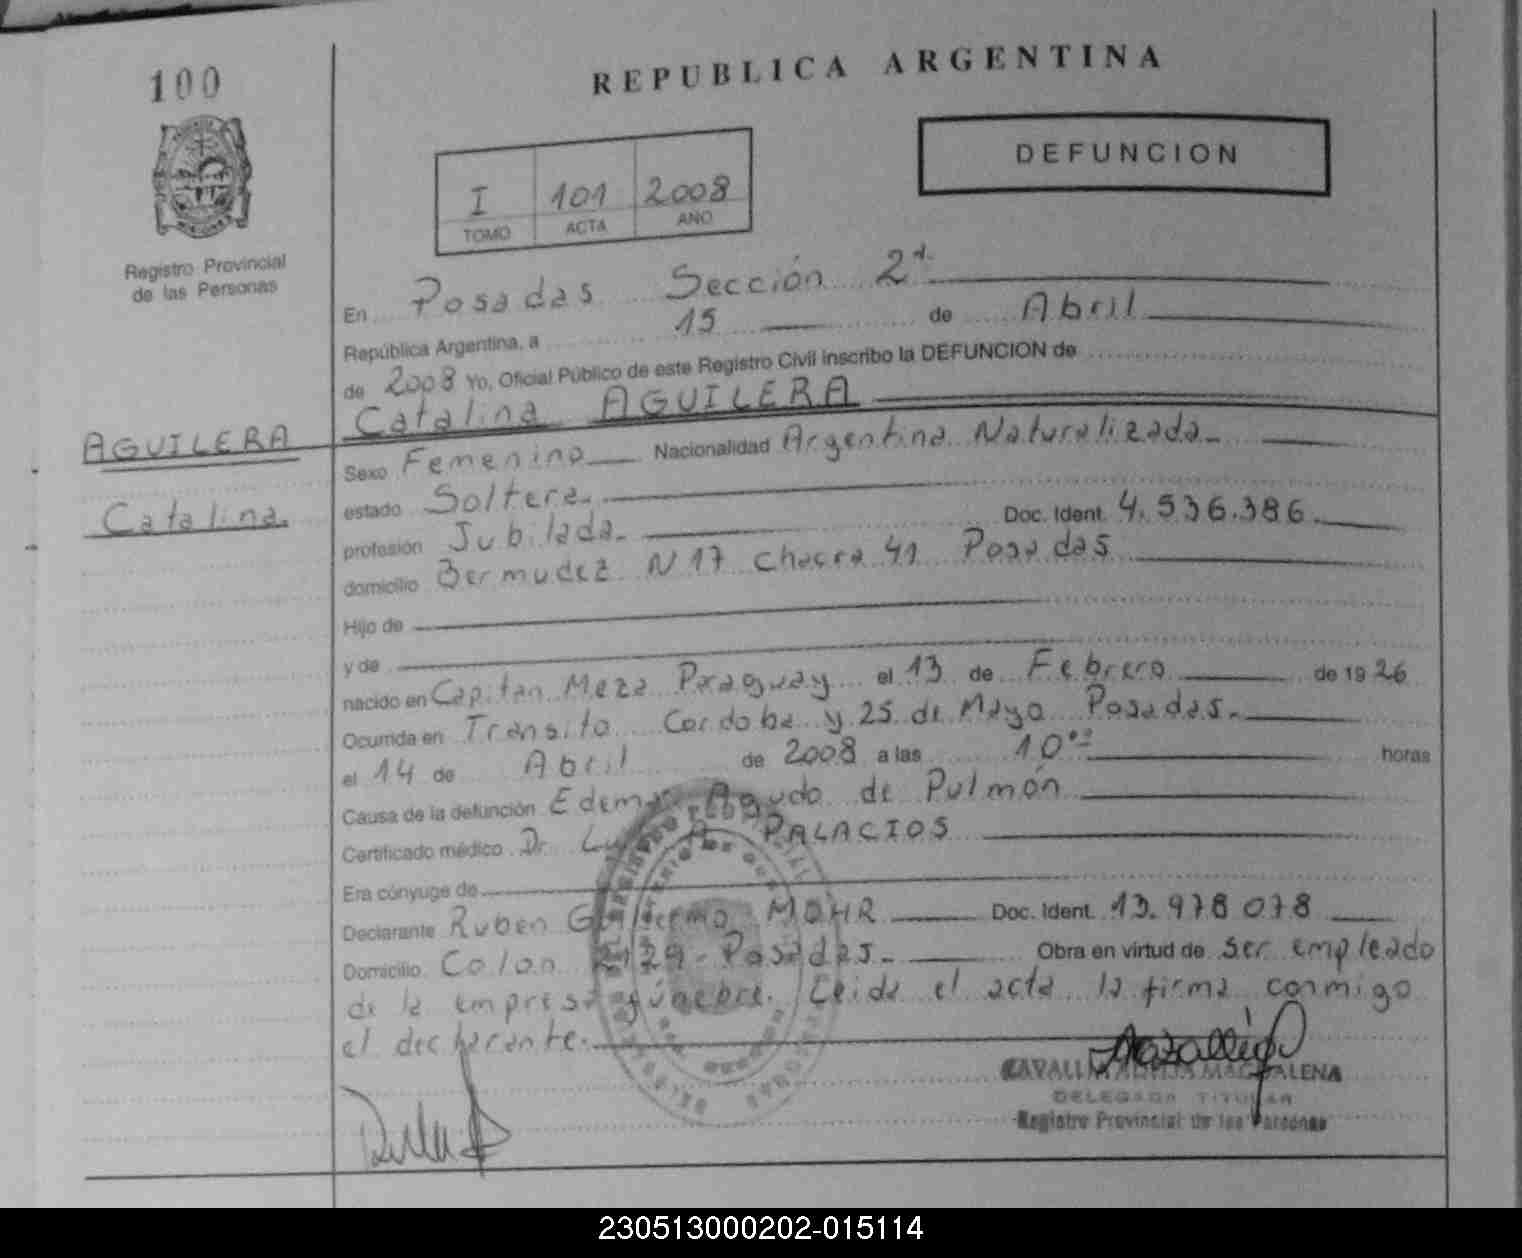 100
REPUBLICA ARGENTINA
DEFUNCION
I 101 2008
TOMO ACTA AÑO
Registro Provincial
de las Personas
En Posadas Sección 2ª
República Argentina, a 15 de Abril
de 2008 Yo, Oficial Público de este Registro Civil inscribo la DEFUNCION de
Catalina AGUILERA
AGUILERA
Catalina.
Sexo Femenino Nacionalidad Argentina Naturalizada
estado Soltera.
profesión Jubilada. Doc. Ident. 4.536.386.
domicilio Bermudez N 17 Chacra 41 Posadas
Hijo de
y de
nacido en Capitan Meza Paraguay el 13 de Febrero de 1926
Ocurrida en Transito Cordoba y 25 de Mayo Posadas.
el 14 de Abril de 2008 a las 10 horas
Causa de la defunción Edema Agudo de Pulmón
Certificado médico Dr. PALACIOS
Era cónyuge de
Declarante Ruben Guillermo MOHR Doc. Ident. 13.978 078
Domicilio Colon Posadas. Obra en virtud de ser empleado
de la empresa fúnebre. Leida el acta la firma conmigo
el declarante.
MAGDALENA
DELEGADA TITULAR
Registro Provincial de las Personas
230513000202-015114